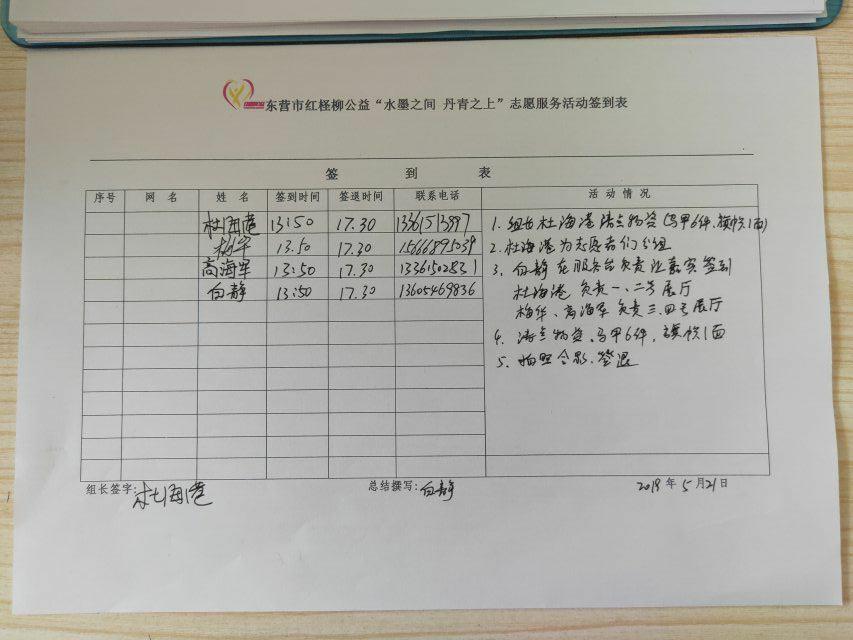 东营市红柽柳公益“水墨之间 丹青之上”志愿服务活动签到表
签 到 表
序号 网 名 姓 名 签到时间 签退时间 联系电话 活 动 情 况
杜海港 13:50 17.30
梅华 13.50 17.30 15666895039
高海军 13:50 17.30 13361502831
白静 13:50 17.30 13605469836
1. 组长杜海港清点物资(马甲6件,旗帜1面)
2. 杜海港为志愿者们分组
3. 白静在服务台负责让嘉宾签到
杜海港 负责一、二号展厅
梅华、高海军 负责三、四号展厅
4. 清点物资、马甲6件,旗帜1面
5. 拍照合影.签退
组长签字:杜海港 总结撰写:白静 2019年5月21日